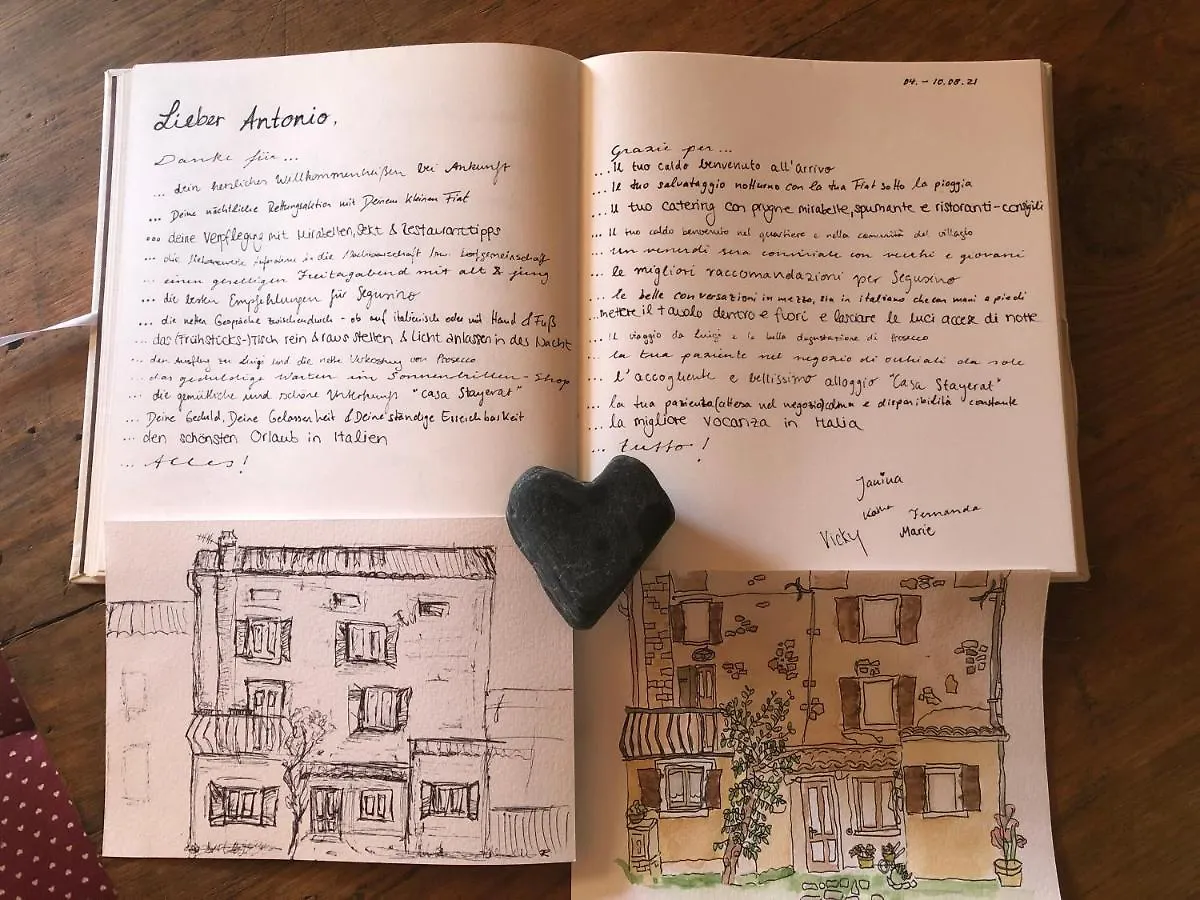 Lieber Antonio,
Danke für...
... dein herzliches Willkommenheißen bei Ankunft
... Deine nächtliche Rettungsaktion mit Deinem kleinen Fiat
... deine Verpflegung mit Mirabellen, Sekt & Restauranttipps
... die liebevolle Aufnahme in die Nachbarschaft Dorfgemeinschaft
... einen geselligen Freitagabend mit alt & jung
... die besten Empfehlungen für Segusino
... die netten Gespräche zwischendurch - ob auf italienisch oder mit Hand & Fuß
... das (Frühstücks-)Tisch rein & raus stellen & Licht anlassen in des Nacht
... den Ausflug zu Luigi und die nette Verkostung von Prosecco
... das geduldige Warten im Sonnenbrillen-Shop
... die gemütliche und schöne Unterkunft "casa Stayerat"
... Deine Geduld, Deine Gelassenheit & Deine ständige Erreichbarkeit
... den schönsten Urlaub in Italien
... Alles!
04. - 10.08.21
Grazie per...
... Il tuo caldo benvenuto all'arrivo
... Il tuo salvataggio notturno con la tua Fiat sotto la pioggia
... Il tuo catering con prugne mirabelle, spumante e ristoranti-consigili
... Il tuo caldo benvenuto nel quartiere e nella comunità del villagio
... un venerdì sera conviviale con vecchi e giovani
... le migliori raccomandazioni per Segusino
... le belle conversazioni in mezzo, sia in italiano che con mani e piedi
... mettere il tavolo dentro e fuori e lasciare le luci accese di notte
... Il viaggio da Luigi e la bella degustazione di Prosecco
... la tua paziente nel negozio di occhiali da sole
... l'accogliente e bellissimo alloggio "Casa Stayerat"
... la tua pazienza (attesa nel negozio) calma e disponibilità constante
... la migliore vocanza in Italia
... tutto!
Janina
Fernanda
Vicky
Marie